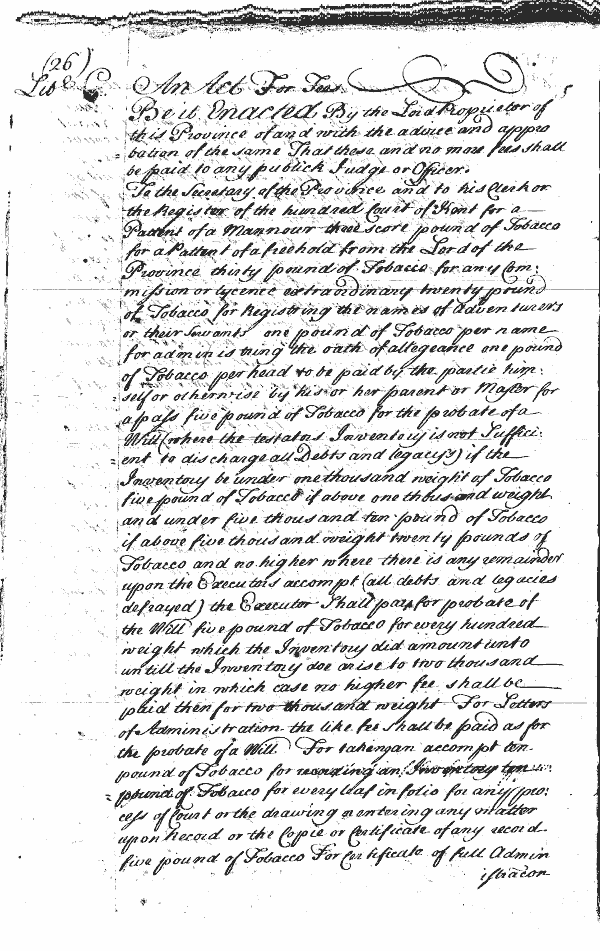 (26)
Lib C
An Act For Fees
Be it Enacted By the Lord Proprietor of
this Province of and with the advice and appro
bation of the same That these and no more fees shall
be paid to any publick Judge or Officer.
To the Secretary of the Province and to his Clerk or
the Register of the hundred Court of Kent for a
Pattent of a Mannour three score pound of Tobacco
for a Pattent of a freehold from the Lord of the
Province thirty pound of Tobacco for any Com:
mission or lycence extraordinary twenty pound
of Tobacco for Registring the names of Adventurers
or their Servants one pound of Tobacco per name
for administring the oath of allegeance one pound
of Tobacco per head to be paid by the partie him
self or otherwise by his or her parent or Master for
a pass five pound of Tobacco for the probate of a
Will (where the testators Inventory is not Suffici:
ent to discharge all Debts and legacys) if the
Inventory be under one thousand weight of Tobacco
five pound of Tobacco if above one thousand weight
and under five thousand ten pound of Tobacco
if above five thousand weight twenty pounds of
Tobacco and no higher where there is any remainder
upon the Executors accompt (all debts and legacies
defrayed) the Executor Shall pay for probate of
the Will five pound of Tobacco for every hundred
weight which the Inventory did amount unto
untill the Inventory doe arise to two thousand
weight in which case no higher fee shall be
paid then for two thousand weight For Letters
of Administration the like fee shall be paid as for
the probate of a Will For taking an accompt ten
pound of Tobacco for recording an Inventory ten
pound of Tobacco for every leaf in folio for any pro:
cess of Court or the drawing or entering any matter
upon Record or the Copie or Certificate of any record
five pound of Tobacco For Certificate of full Admin
istracon